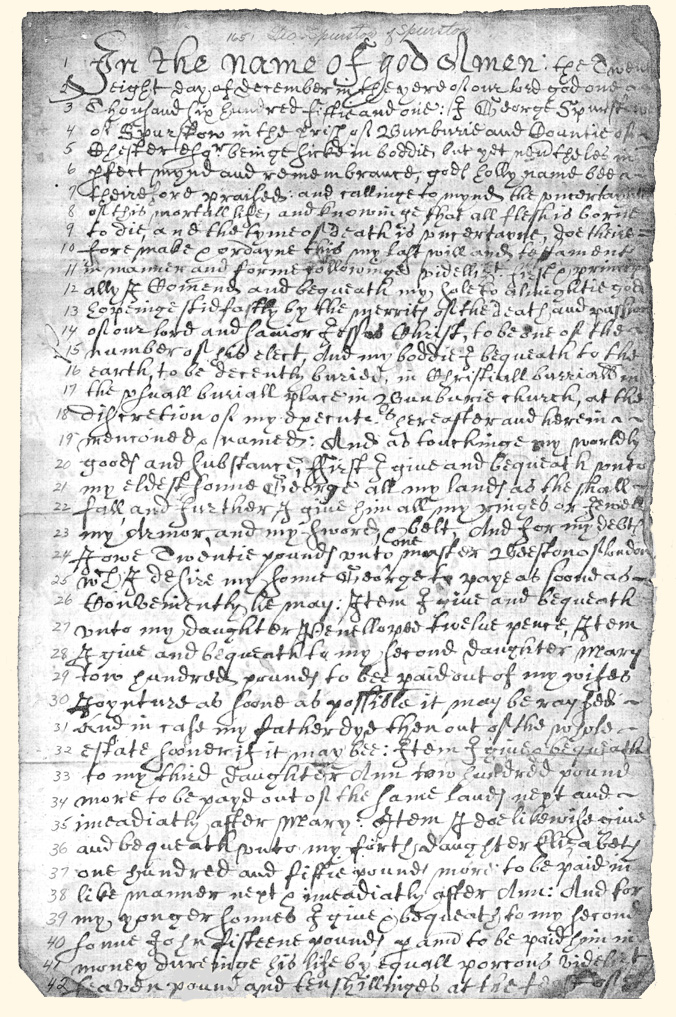 1651 Geo Spurstow of Spurstow
1 In the name of god Amen: the Twen
2 eight day of December in the yere of our lord god one
3 Thousand six hundred fiftie and one: I George Spurstowe
4 of Spurstow in the p'ish of Bunburie and Countie of
5 Chester esqr beinge sicke in boddie, but yet nevtheles in
6 pfect mynd and remembrance, gods holly name bee
7 theirefore praised: and callinge to mynd the uncertaintie
8 of this mortall life, and knowinge that all flesh is borne
9 to die, and the tyme of death is uncertayne, doe theire
10 fore make & ordayne this my last will and testament
11 in manner and forme followinge videllizt: first & princip
12 ally I Comend and bequeath my sole to almightie god
13 Expeinge stidfastly by the merrits of the death and passion
14 of our lord and savior Jesus Christ, to be one of the
15 number of his elect, And my boddie I bequeath to the
16 earth, to be decently buried, in Christiall burriall in
17 the usuall buriall place in Bunburie church, at the
18 discretion of my Executrs hereafter and herein
19 mencioned & named: And as touchinge my worldly
20 goods and substance, ffirst I give and bequeath unto
21 my eldest sonne George all my lands as the shall
22 fall and further I give him all my ringes or Jewells
23 my Armor, and my sword & belt, And for my debts
24 I owe Twentie pounds unto one master Beeston of london
25 wch I desire my sonne George to paye as soone as
26 Conveniently he may: Item I give and bequeath
27 unto my daughter Penelloped twelve pence, Item
28 I give and bequeath to my second daughter Mary
29 tow hundred pounds to bee paid out of my wifes
30 Joynture as soone as possible it may be raysed
31 And in case my father dye then out of the whole
32 estate sooner if it may bee: Item I give & bequeath
33 to my third daughter Ann tow hundred pound
34 more to be payd out of the same lands next and
35 imeadiatly after Mary: Item I doe likewise give
36 and bequeath unto my forth daughter Elizabeth
37 one hundred and fiftie pounds more to be paid in
38 like manner next & imeadiatly after Ann: And for
39 my yonger sonnes I give & bequeath to my second
40 sonne John fifteene pounds p and to be paid him in
41 money dureinge his life by equall porcons videlizt
42 seaven pound and ten shillinges at the feast of